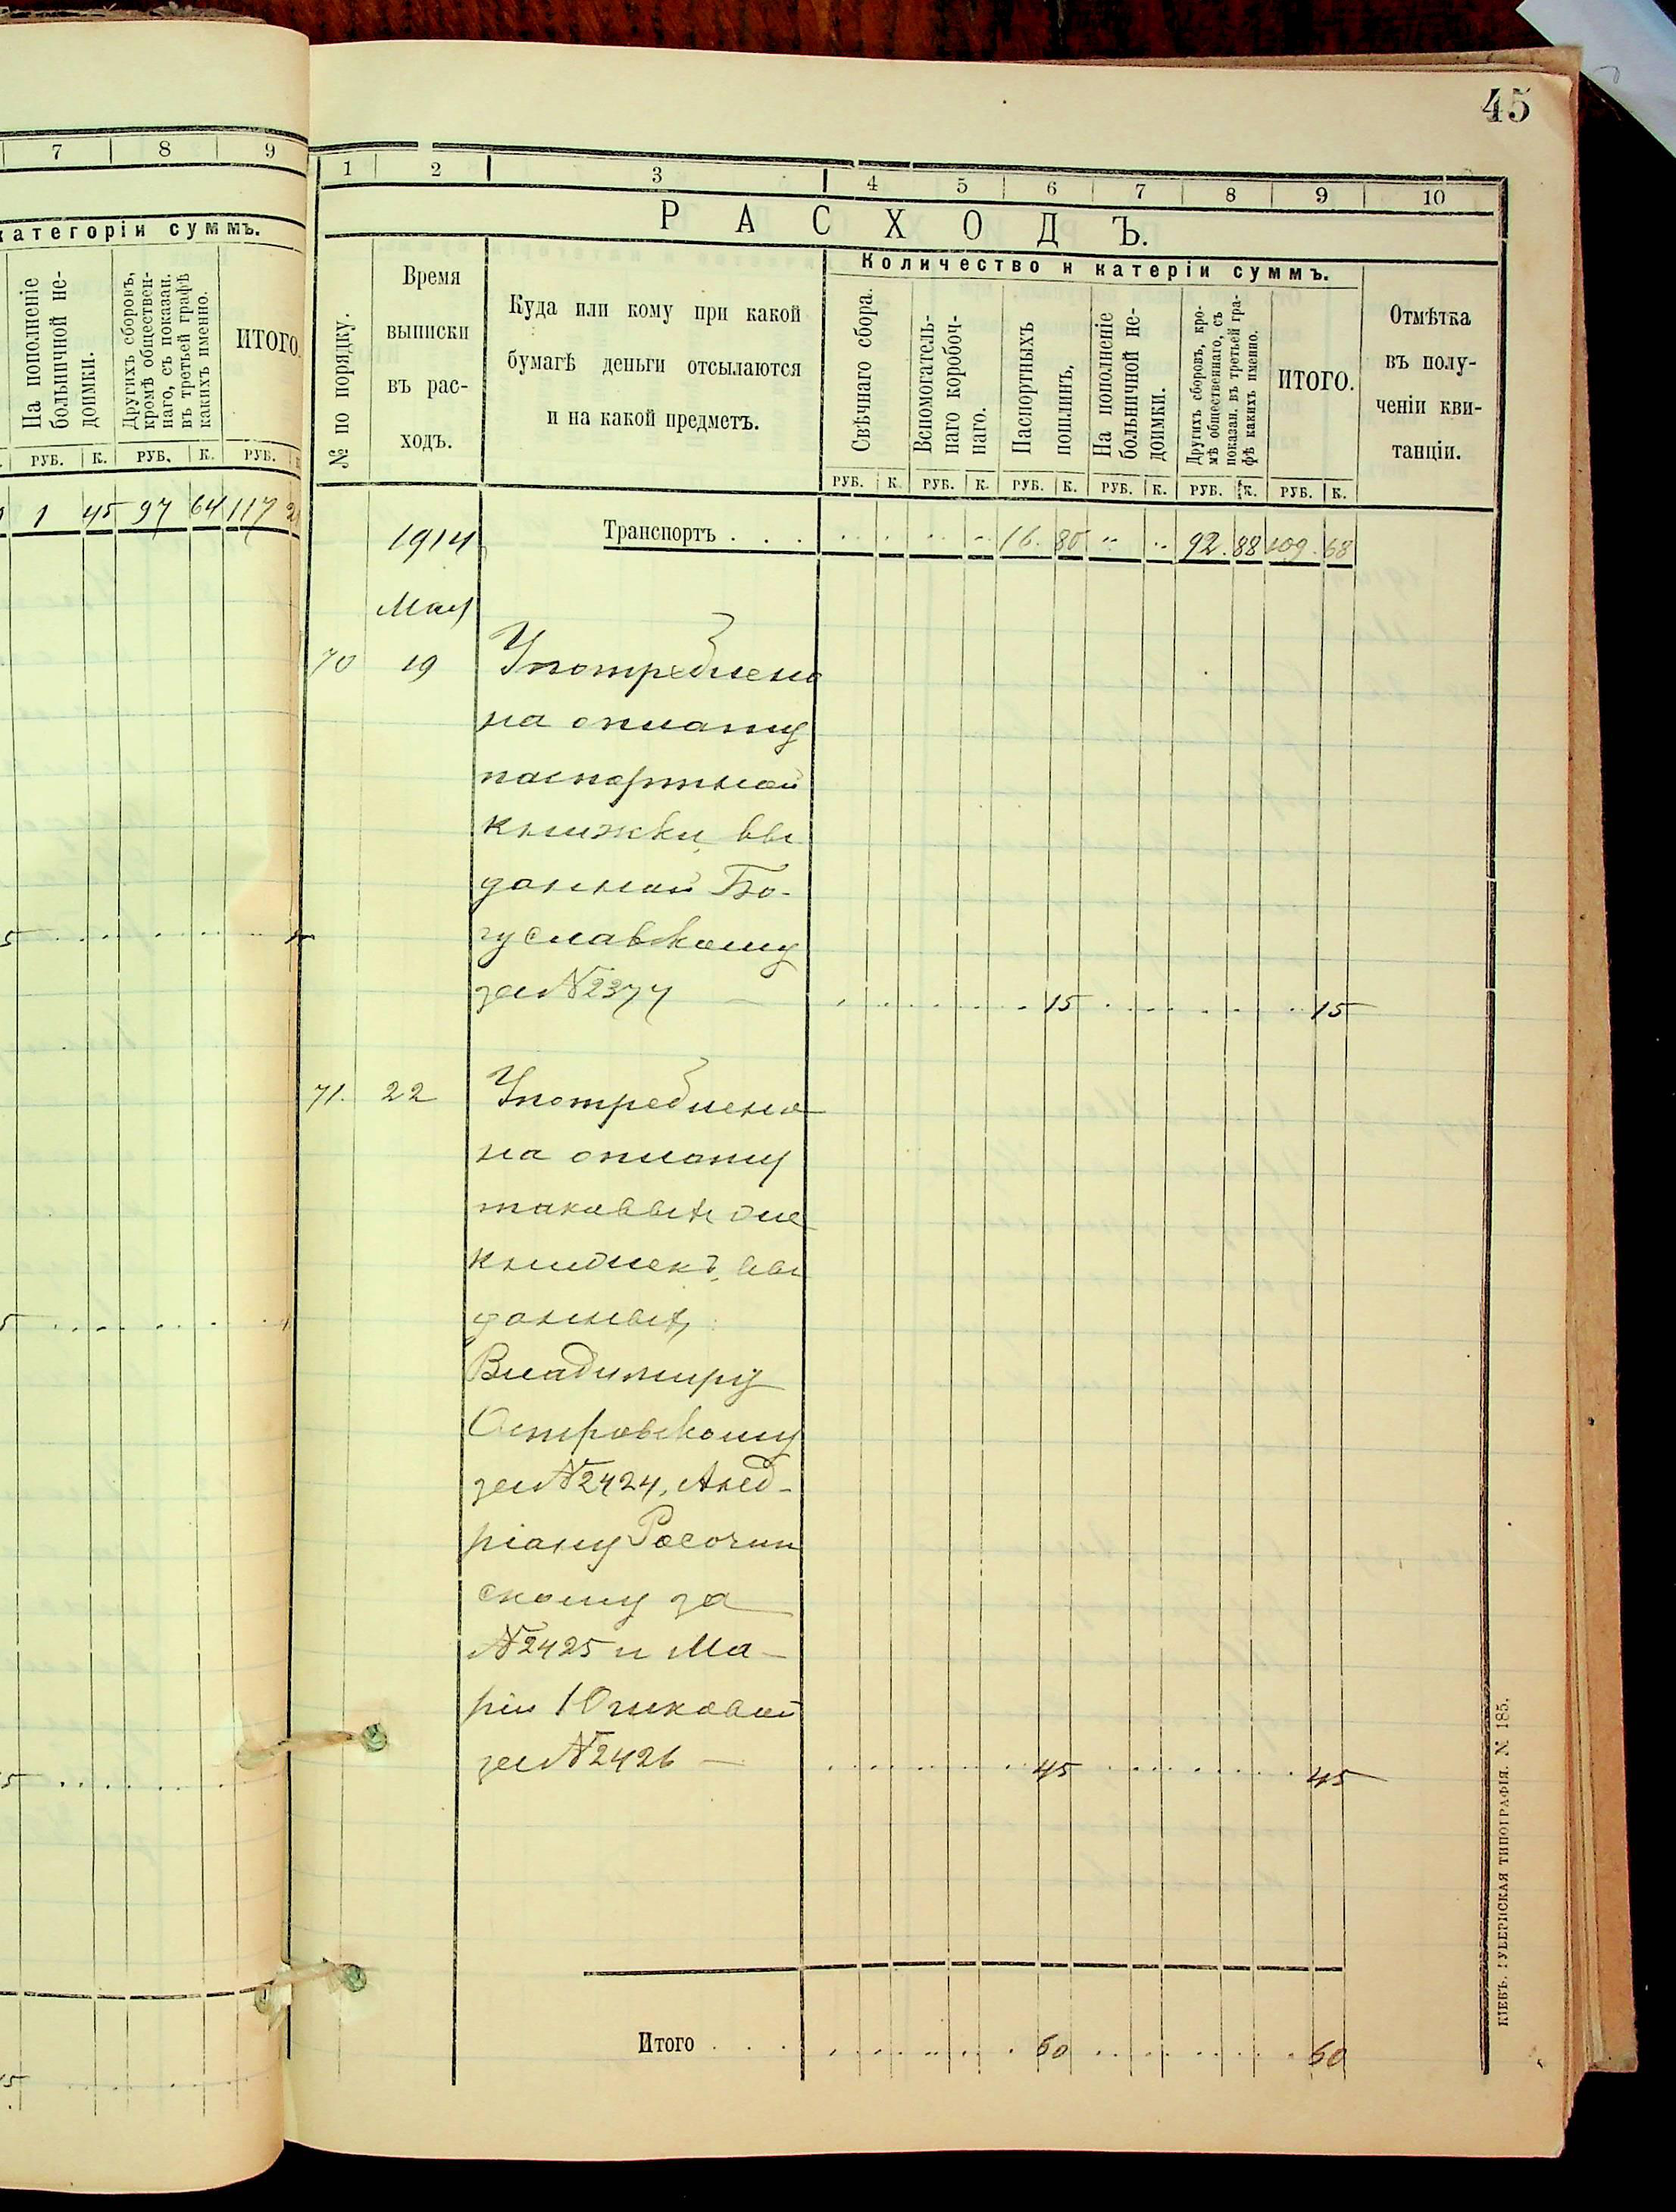 7 8 9
категоріи суммъ.
На пополненіе
больничной не-
доимки.
Другихъ сборовъ,
кромѣ обществен-
наго, съ показан.
въ третьей графѣ
какихъ именно.
ИТОГО.
РУБ. К. РУБ. К. РУБ.
1 45 97 64 117
45
1 2 3 4 5 6 7 8 9 10
РАСХОДЪ.
№ по порядку.
Время
выписки
въ рас-
ходъ.
Куда или кому при какой
бумагѣ деньги отсылаются
и на какой предметъ.
Количество и катеріи суммъ.
Свѣчнаго сбора.
Вспомогатель-
наго коробоч-
наго.
Паспортныхъ
пошлинъ.
На пополненіе
больничной не-
доимки.
Другихъ сборовъ, кро-
мѣ общественнаго, съ
показан. въ третьей гра-
фѣ какихъ именно.
ИТОГО.
Отмѣтка
въ полу-
ченіи кви-
танціи.
РУБ. К. РУБ. К. РУБ. К. РУБ. К. РУБ. К. РУБ. К.
1914 Транспортъ . . . 16. 80 92. 88 109. 68
Мая
70 19 Употреблено
на оплату
паспортной
книжки, вы
данной Бо-
гуславскому
за № 2377 — 15 15
71. 22 Употреблено
на оплату
таковыхъ же
книжекъ, вы
данныхъ,
Владимиру
Островскому
за № 2424, Анд-
ріану Росочин
скому за
№ 2425 и Ма-
ріи Юшковой
за № 2426 — 45 45
Итого . . . 60 60
КІЕВЪ. ГУБЕРНСКАЯ ТИПОГРАФІЯ. № 185.